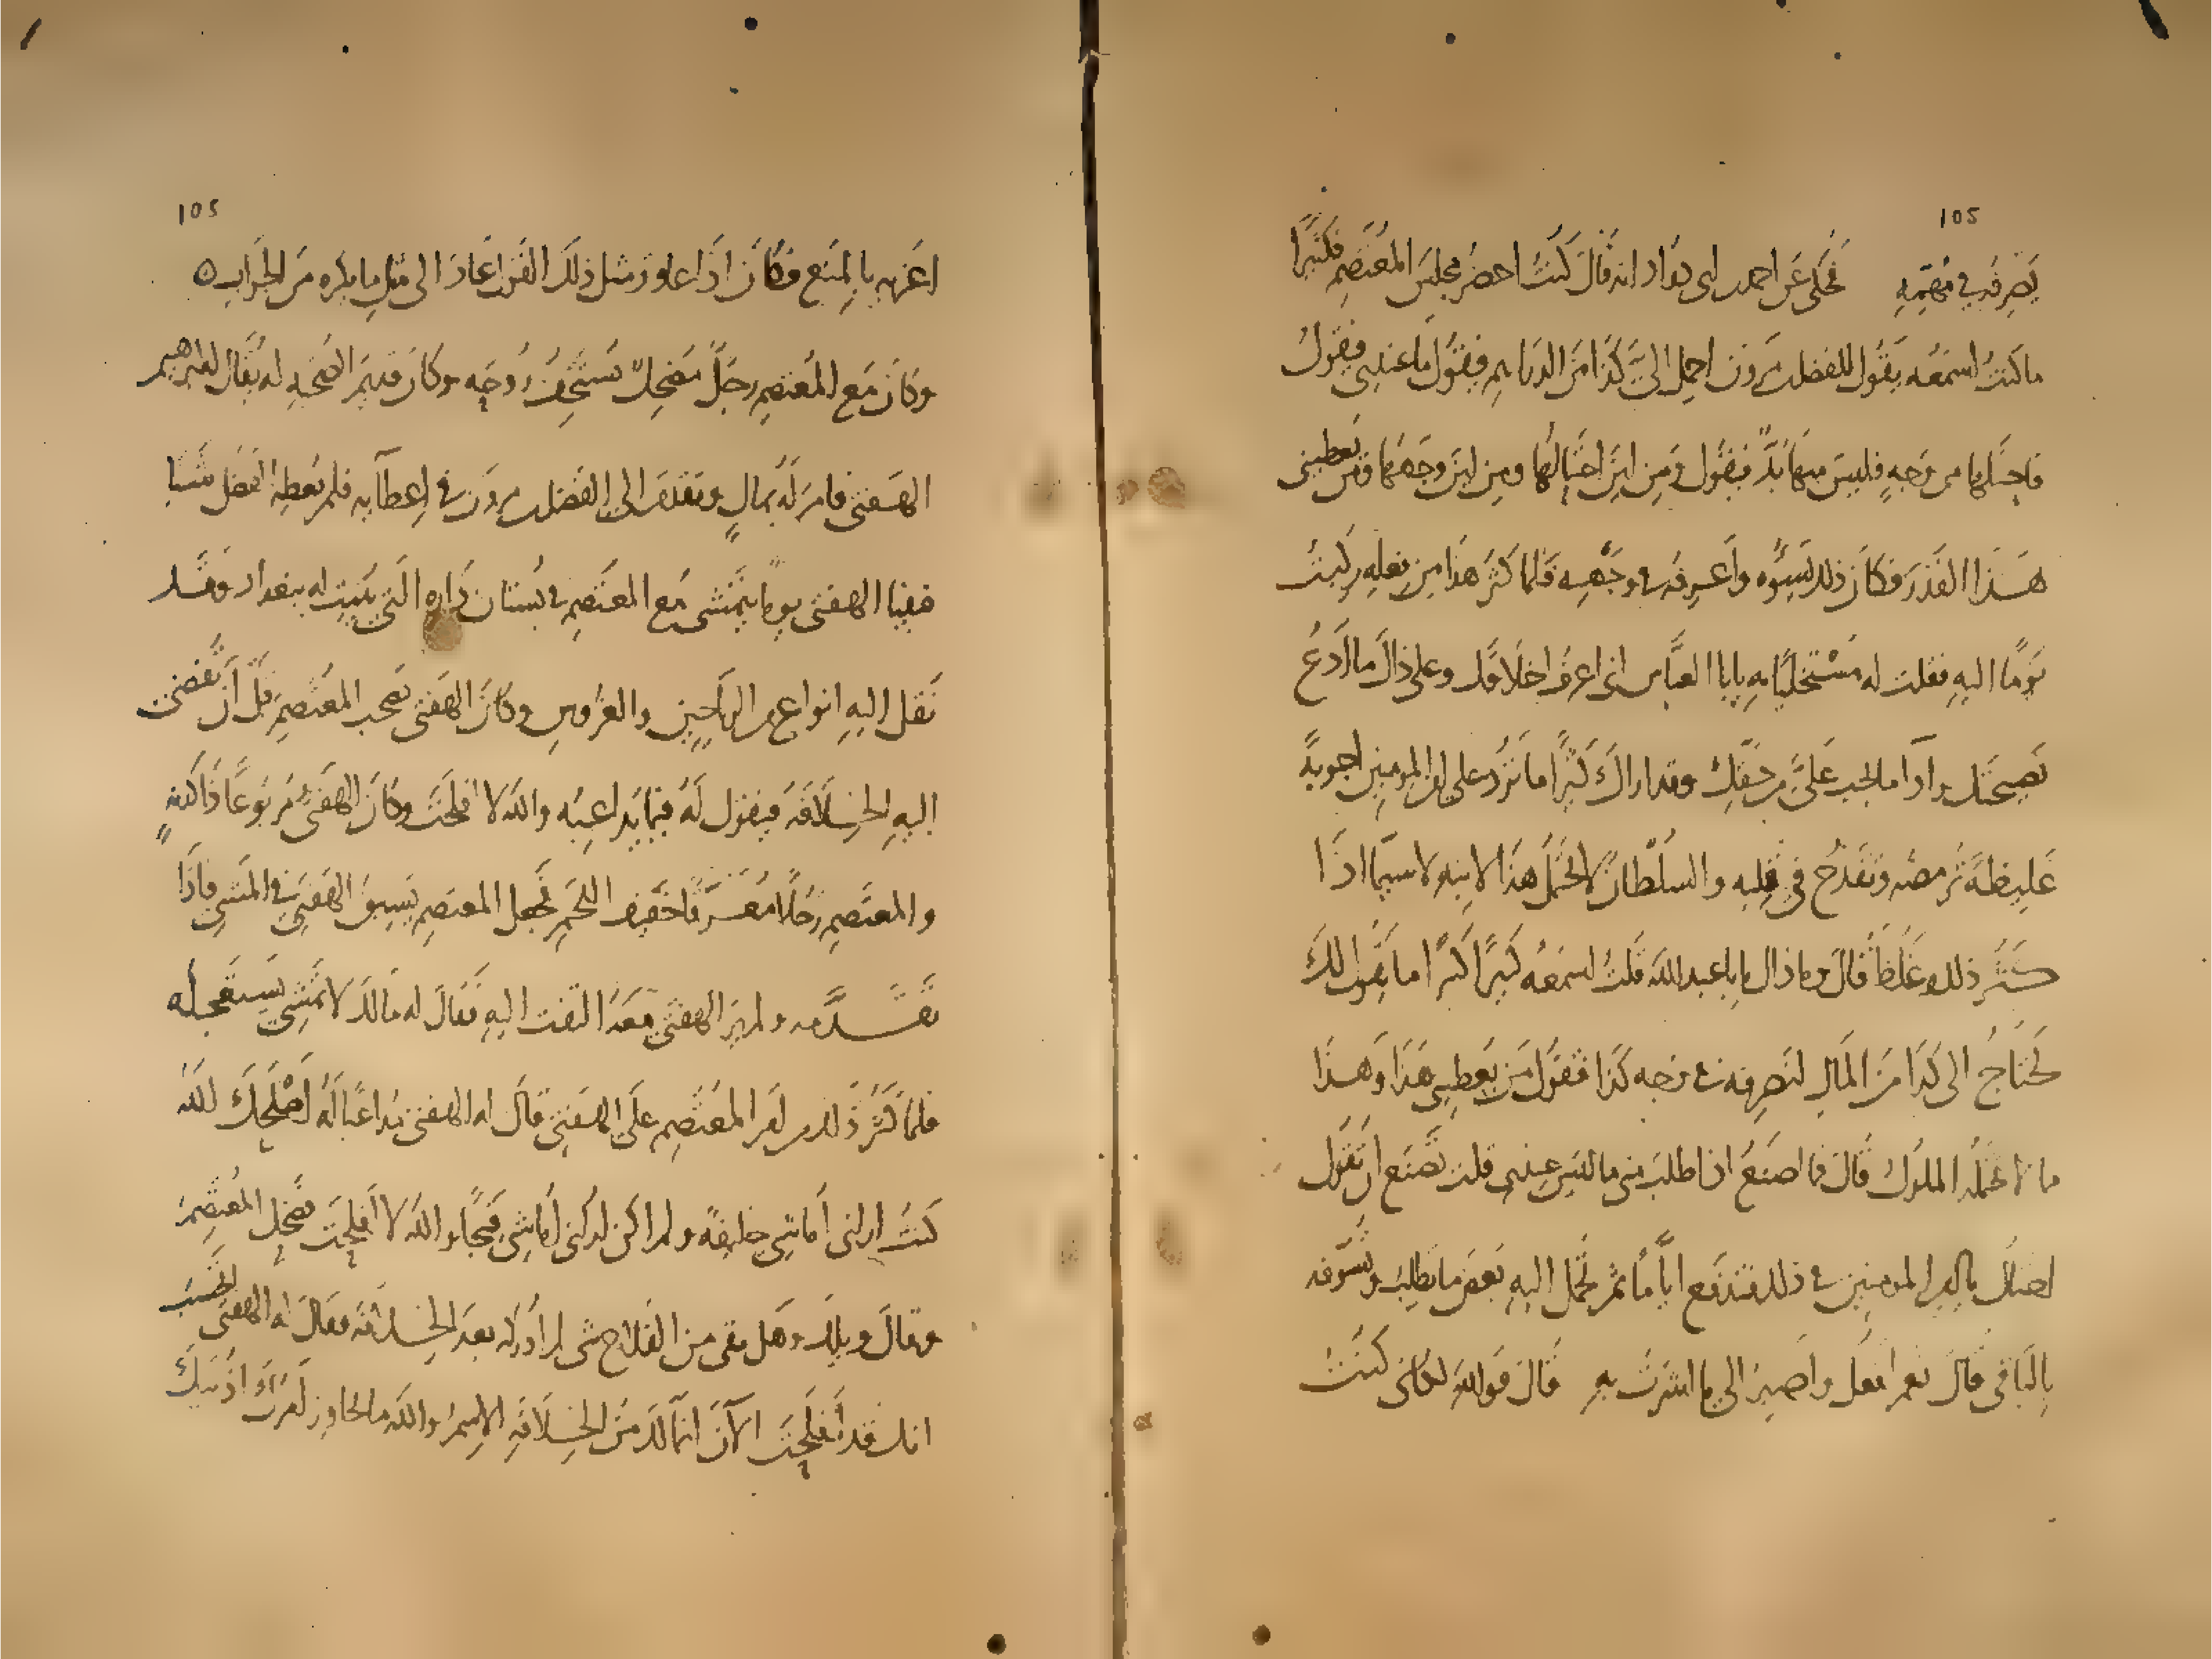 ١٥٤
يصرفه في مهمه فحكى عن احمد بن ابى دواد انه قال كنت احضر مجلس المعتصم فكثيرا
ما كنت اسمعه يقول للفضل بن مروان احمل الىَّ كذا من الدراهم فيقول ما عندي فيقول
فاحتلها من وجه فليس منها بدّ فيقول ومن اين احتالها ومن اين وجهها ومن يعطيني
هذا القدر فكان ذلك يسوه واعرفه في وجهه فلما كثر هذا من فعله ركبت
يومًا اليه فقلت له مستخليًا به يابا العباس انى اعرف اخلاقك وعلى ذاك ما ادع
نصيحتك واداما يجب علىَّ من حقك وقد اراك كثيرًا ما ترد على امير المومنين اجوبةً
غليظة ترمضه وتقدح في قلبه والسلطان لا يحتمل هذا لابنه لا سيما اذا
كثر ذلك وغلظ قال وما ذاك يابا عبدالله قلت اسمعه كثيرًا كثيرًا ما يقول لك
نحتاج الى كذا من المال لنصرفه في وجه كذا فتقول من يعطينى هذا وهذا
ما لا تحتمله الملوك قال فما اصنع اذا طلب منى ما ليس عندى قلت تصنع ان تقول
احتال يا امير المومنين في ذلك فتدفع اياما ثم تحمل اليه بعض ما يطلب وتسوفه
بالباقى قال نعم افعل واصير الى ما اشرت به قال فوالله لكانى كنت
١٥٤
اغريه بالمنع فكان اذا عاود مثل ذلك القول عاد الى مثل ما يكره من الجواب ه
وكان مع المعتصم رجل مضحك يستخف روحه وكان قديم الصحبه له يقال له ابرهيم
الهفتى فامر له بمال وتقدم الى الفضل بن مروان في اعطآيه فلم يعطه الفضل شيا
فبينا الهفتى يوما يتمشى مع المعتصم في بستان داره التى بنيت له ببغداد وقد
نقل اليه انواع من الرياحين والغروس وكان الهفتى يصحب المعتصم قبل ان تفضى
اليه الخلافة فيقول له فيما يداعبه والله لا افلحت وكان الهفتى مربوعًا ذا كدنةٍ
والمعتصم رجلًا معرقًا خفيف اللحم فجعل المعتصم يسبق الهفتى في المشى فاذا
تقدمه ولم ير الهفتى معه التفت اليه فقال له مالك لا تمشى يستعجله
فلما كثر ذلك من امر المعتصم على الهفتى قال له الهفتى مداعبا له اصلحك الله
كنت ارانى اماشى خليفه ولم اكن ارانى اماشى فيجا والله لا افلحت فضحك المعتصم
وقال ويلك وهل بقى من الفلاح شى لم ادركه بعد الخلافه فقال له الهفتى اتحسب
انك قد افلحت الآن انما لك من الخلافه الاسم والله ما يجاوز امرك اذنيك